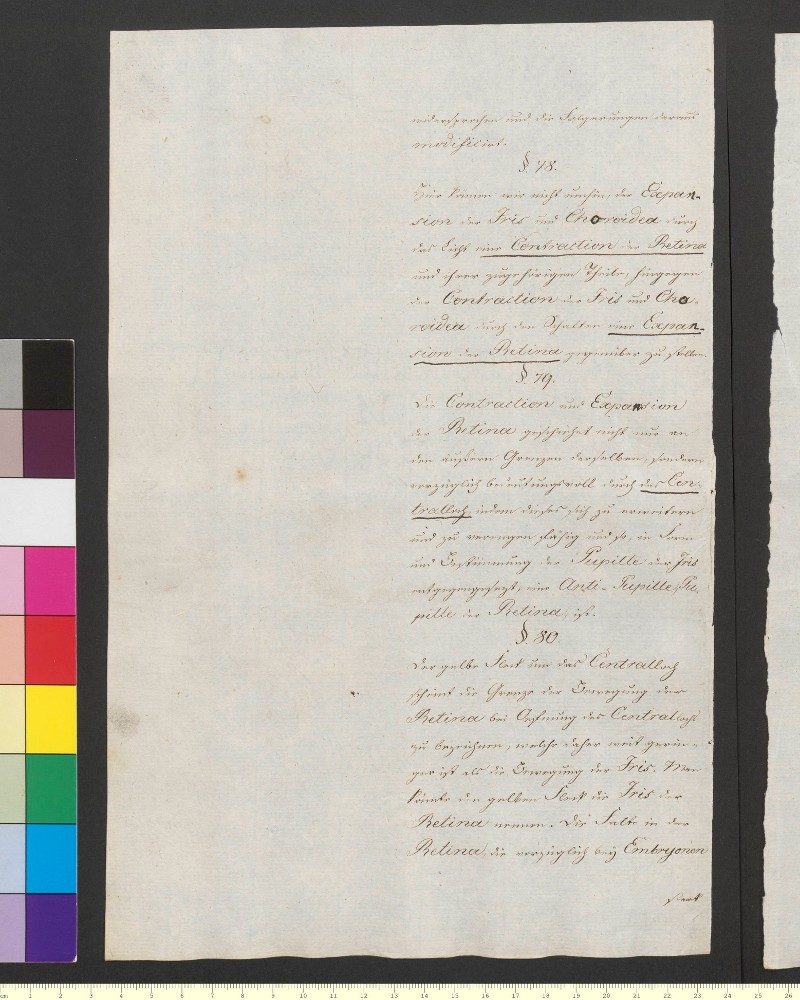 widersprechen und die Folgerungen daraus
modificirt.
§. 78.
Hier können wir nicht umhin, der Expan-
sion der Iris und Choroidea durch
das Licht eine Contraction der Retina
und ihrer zugehörigen Theile, hingegen
der Contraction der Iris und Cho-
roidea durch den Schatten eine Expan-
sion der Retina gegenüber zu stellen.
§. 79.
Die Contraction und Expansion
der Retina geschiehet nicht nur an
den äußern Grenzen derselben, sondern
vorzüglich bedeutungsvoll durch das Cen-
tralloch, indem dieses sich zu erweitern
und zu verengen fähig und so, in Form
und Bestimmung der Pupille der Iris
entgegengesezt, eine Anti-Pupille, Pu-
pille der Retina, ist.
§. 80.
Der gelbe Fleck um das Centralloch
scheint die Grenze der Bewegung der
Retina bei Oefnung des Centrallochs
zu bezeichnen, welche daher weit gerin-
ger ist als die Bewegung der Iris. Man
könnte den gelben Fleck die Iris der
Retina nennen. Die Falte in der
Retina, die vorzüglich bey Embryonen
stark